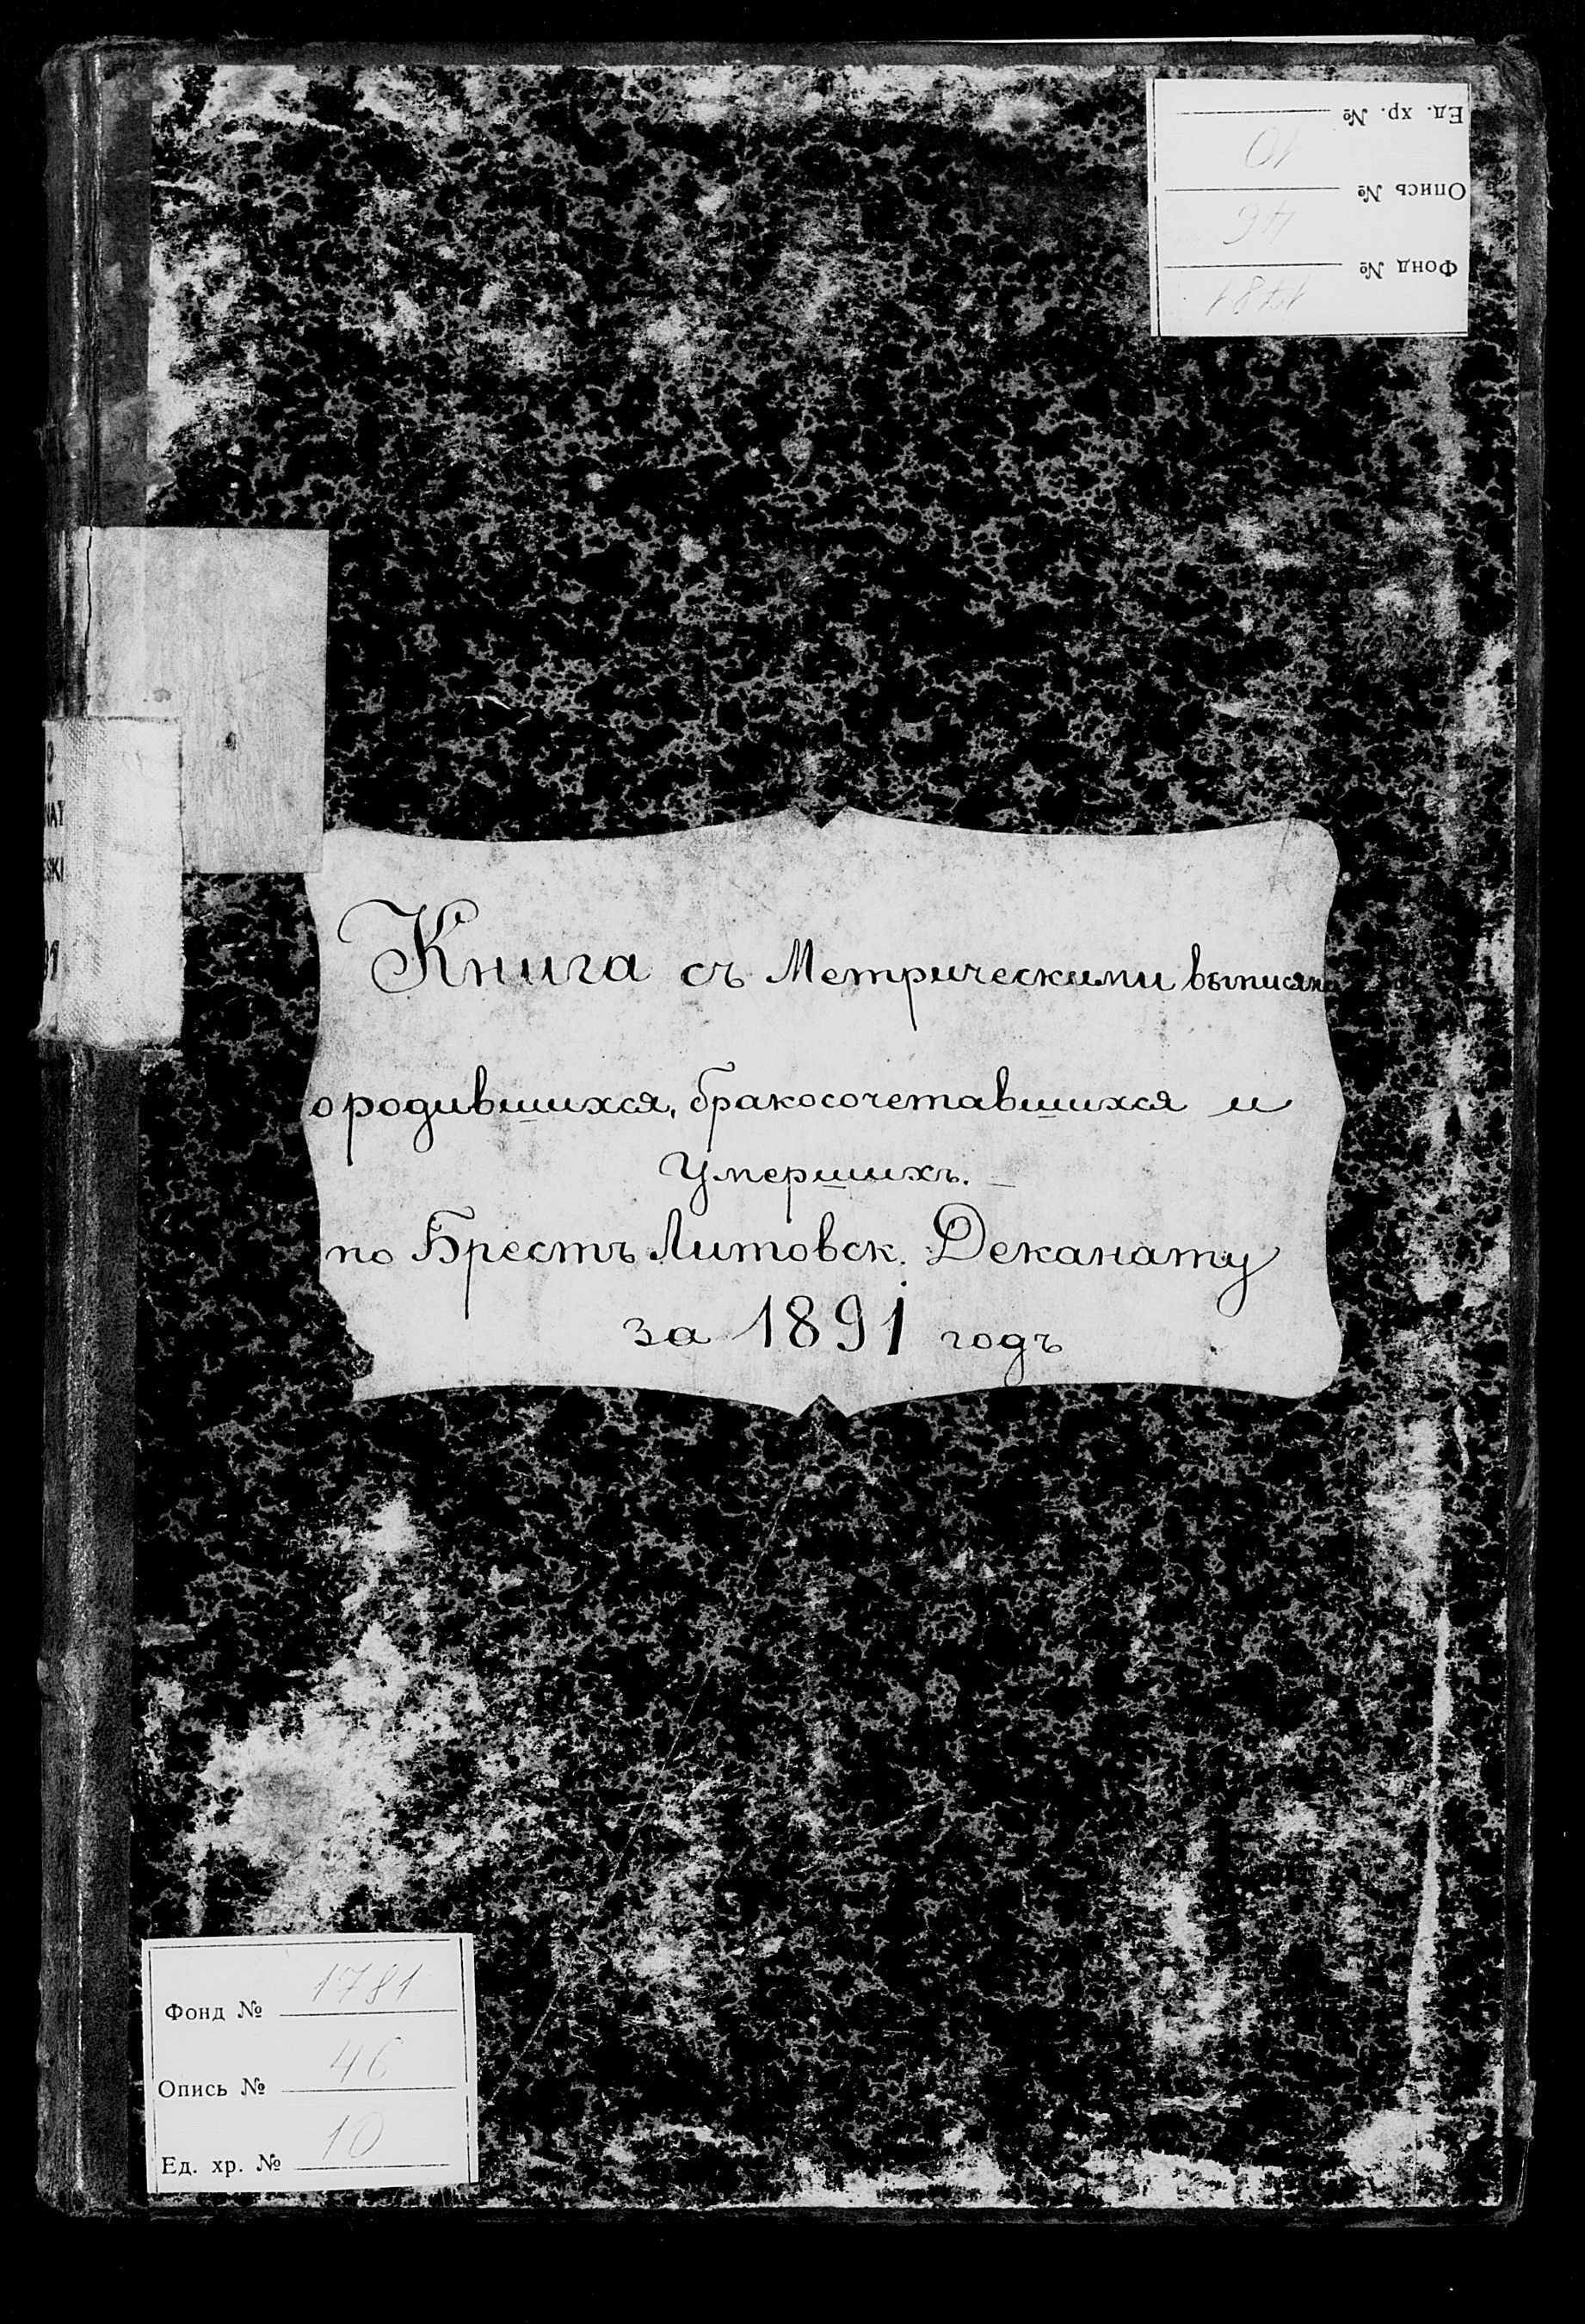 Ед. хр. № 10
Опись № 46
Фонд № 1781
Книга съ Метрическими
о родившихся, бракосочетавшихся и
Умершихъ.
по Брестъ Литовск. Деканату
за 1891 годъ
Фонд № 1781
Опись № 46
Ед. хр. № 10